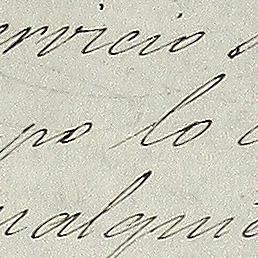 ervicio
po lo
ualquie